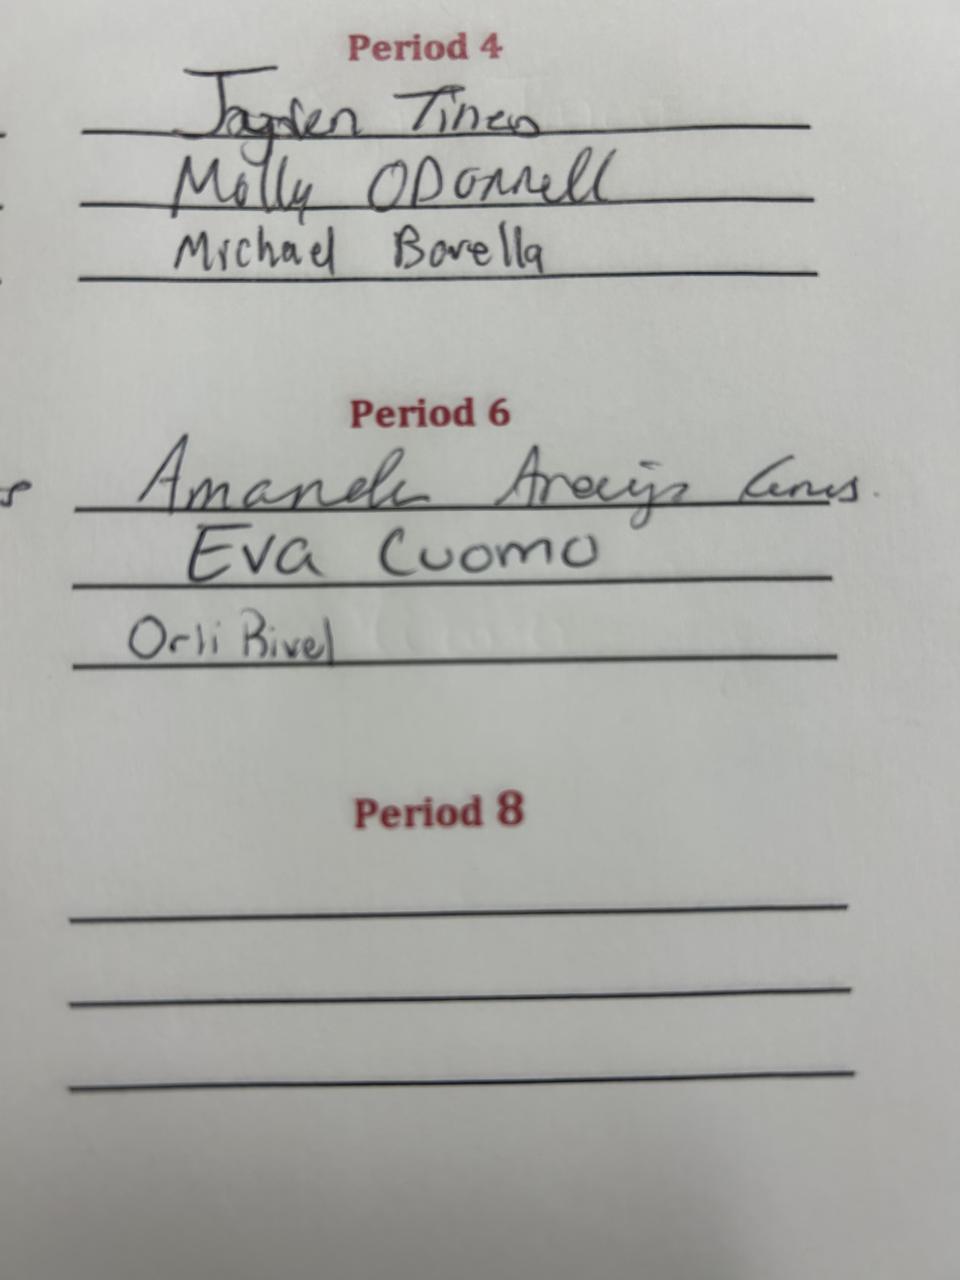 Period 4
Jayden Tineo
Molly ODonnell
Michael Borella
Period 6
Amanda Araujo
Eva Cuomo
Orli Rivel
Period 8